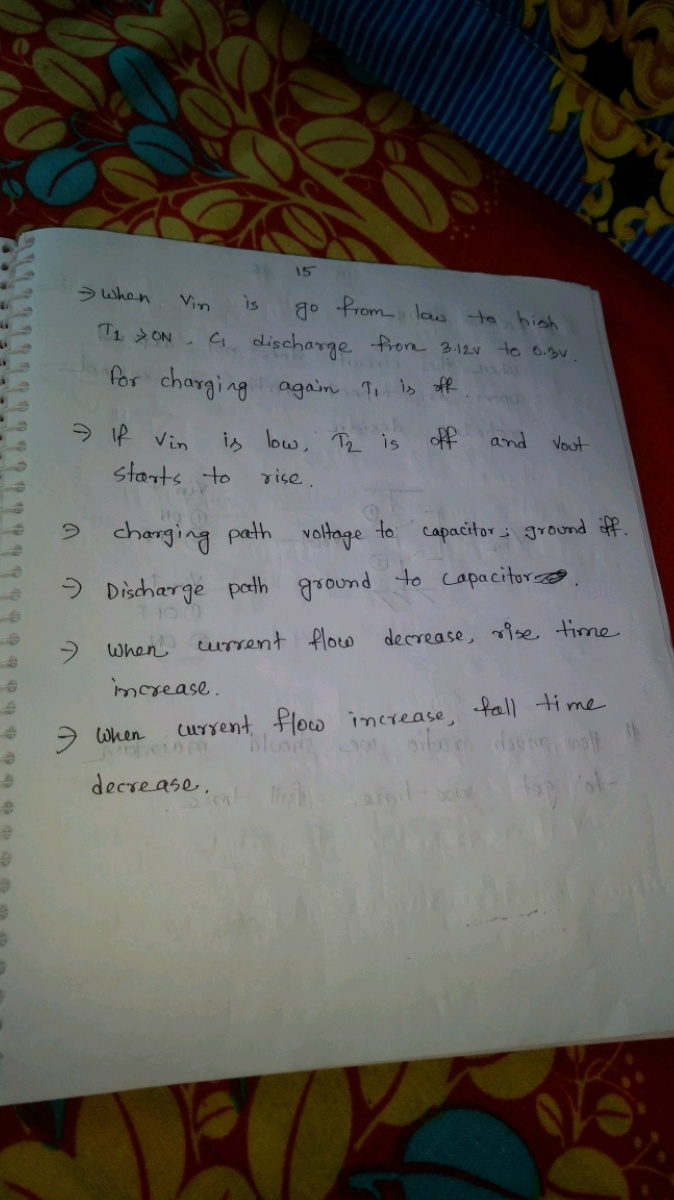 15
→ when Vin is go from low to high
T1 → ON. C1 discharge from 3.12v to 0.3v.
for charging again T1 is off.
→ If Vin is low, T2 is off and Vout
starts to rise.
→ charging path voltage to capacitor; ground off.
→ Discharge path ground to capacitor.
→ when current flow decrease, rise time
increase.
→ when current flow increase, fall time
decrease.